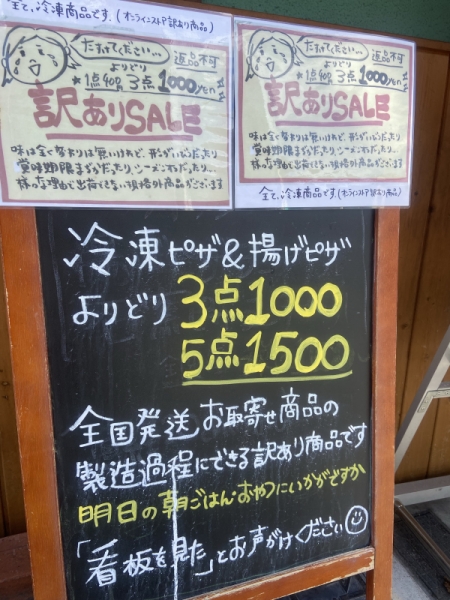 全て、冷凍商品です。(オンラインストア訳あり商品)
たすけてください… 返品不可
よりどり
★1点400円 3点1000yen
訳ありSALE
味は全く変わりは無いけれど、形がいびつだったり
賞味期限まぢかだったり、シーズンものだったり、
様々な理由で出荷できない規格外商品がございます
たすけてください… 返品不可
よりどり
★1点400円 3点1000yen
訳ありSALE
味は全く変わりは無いけれど、形がいびつだったり
賞味期限まぢかだったり、シーズンものだったり、
様々な理由で出荷できない規格外商品がございます
全て、冷凍商品です。(オンラインストア訳あり商品)
冷凍ピザ&揚げピザ
よりどり 3点1000
5点1500
全国発送お取寄せ商品の
製造過程にできる訳あり商品です
明日の朝ごはん・おやつにいかがですか
「看板を見た」とお声がけください